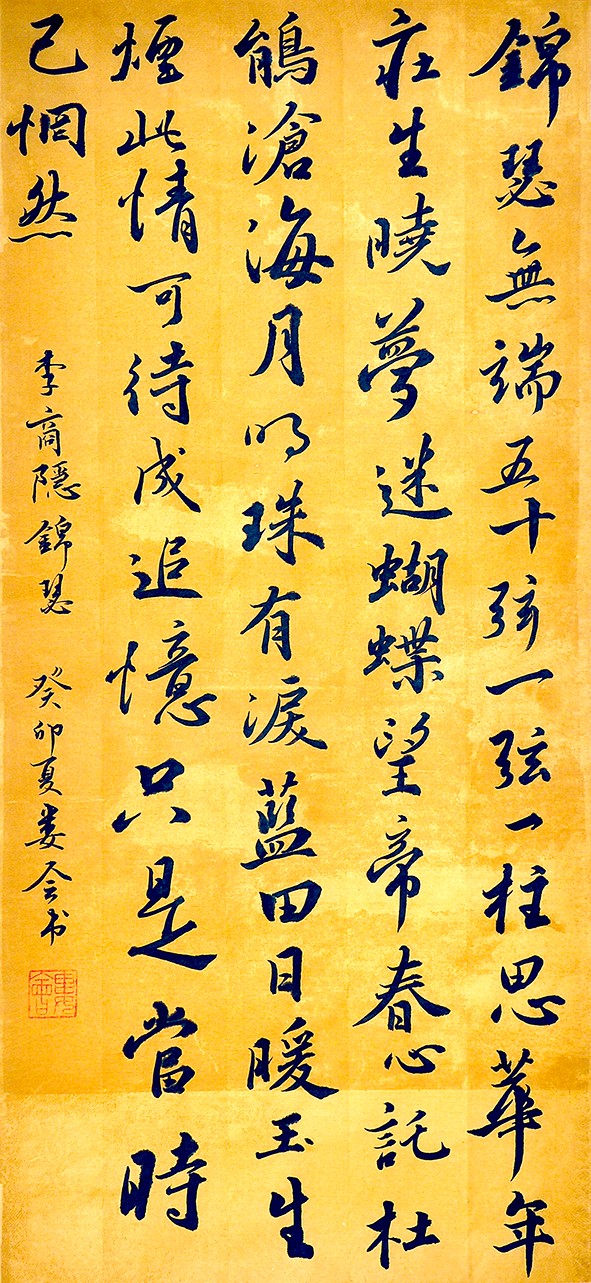 錦瑟無端五十弦一弦一柱思華年
莊生曉夢迷蝴蝶望帝春心託杜
鵑滄海月明珠有淚藍田日暖玉生
煙此情可待成追憶只是當時
已惘然
李商隱錦瑟 癸卯夏婁会书